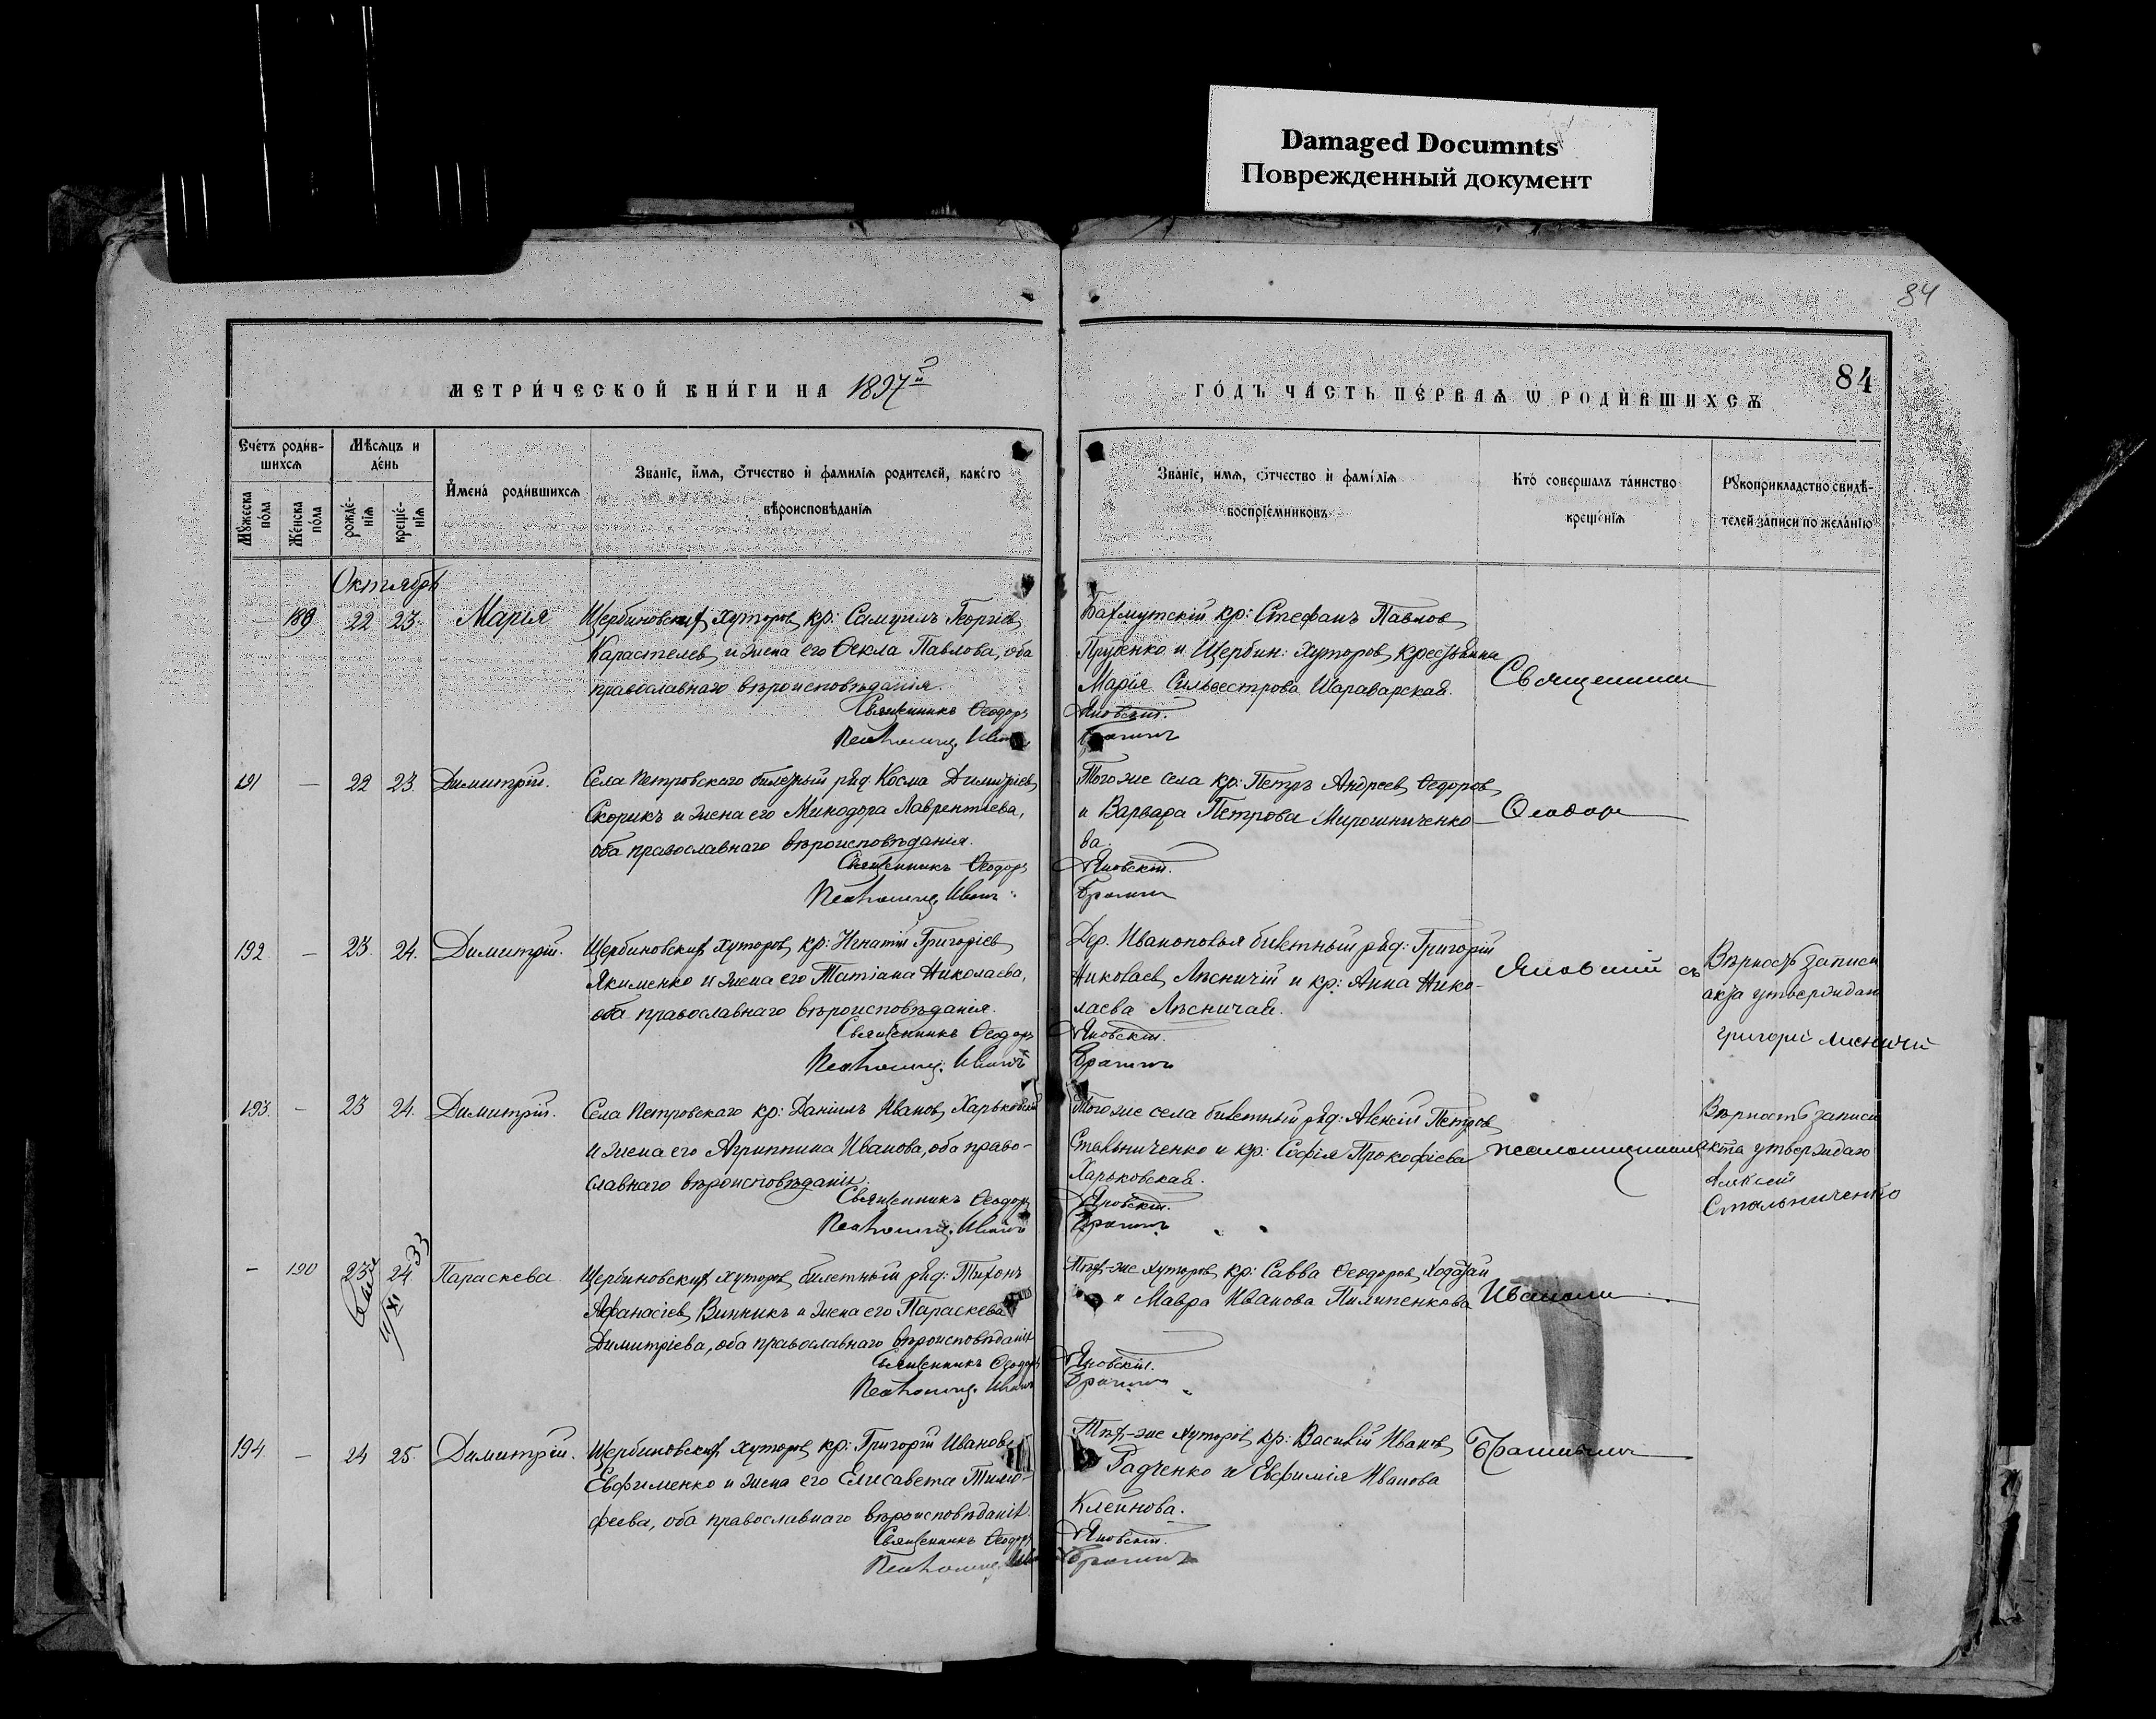 Damaged Documnts
Поврежденный документ
84
МЕТРИ́ЧЕСКОЙ КНИ́ГИ НА 1897й
ГО́ДЪ ЧА́СТЬ ПЕ́РВАѦ Ѡ РОДИ́ВШИХСѦ
84
Счетъ роди́в-
шихсѧ
Мѣсѧцъ и
де́нь
Мꙋжеска
по́ла
Же́нска
по́ла
рожде́-
нїѧ
креще́-
нїѧ
Имена́ роди́вшихсѧ
Зва́нїе, и́мѧ, ѻ́тчество и҆ фами́лїѧ родителей, како́гѡ
вѣроисповѣ́данїѧ
Зва́нїе, имѧ, ѻ́тчество и҆ фамі́лїѧ
воспрїе́мниковъ
Кто́ соверша́лъ та́инство
креще́нїѧ
Рꙋкоприкладство свидѣ́-
телей за́писи по жела́нїю
Октябрь
189 22 23 Марія Щербиновских хуторов кр: Самуилъ Георгіев
Карастелев и жена его Ѳекла Павлова, оба
православнаго вѣроисповѣданія.
Священникъ Ѳеодоръ
Бахмутскій кр: Стефанъ Павлов
Пруденко и Щербин: хуторов крестьянка
Марія Сильвестрова Шараварская.
Яновскій.
Священники
191 — 22 23 Димитрій. Села Петровскаго билетный ряд. Косма Димитріев
Скорикъ и жена его Минодора Лаврентіева,
оба православнаго вѣроисповѣданія.
Священникъ Ѳеодоръ
Иванъ
Того же села кр: Петръ Андреев Ѳедоров
и Варвара Петрова Мирошниченко-
ва.
Яновскій.
Ѳеодор
192 — 23 24. Димитрій. Щербиновских хуторов кр: Игнатій Григоріев
Якименко и жена его Татіана Николаева,
оба православнаго вѣроисповѣданія.
Священникъ Ѳеодоръ
Дер. Иванополья билетный ряд: Григорій
Николаев Лѣсничій и кр: Анна Нико-
лаева Лѣсничая.
Яновскій.
Яновскій съ
Вѣрность записи
акта утверждаю
Григорій Лисничій
193. — 23 24. Димитрій. Села Петровскаго кр: Даніилъ Иванов Харьковскій
и жена его Агриппина Иванова, оба право-
славнаго вѣроисповѣданія.
Священникъ Ѳеодоръ
Того же села билетный ряд: Алексій Петров
Стальниченко и кр: Софія Прокофіева
Харьковская.
Яновскій.
псаломщиком
Вѣрность записи
акта утверждаю
Алексей
Стальниченко
— 190 23 24 Параскева Щербиновских хуторов билетный ряд: Тихонъ
Афанасіев Винникъ и жена его Параскева
Димитріева, оба православнаго вѣроисповѣданія
Священникъ Ѳеодоръ
Тѣх-же хуторов кр: Савва Ѳеодоров
и Мавра Иванова Пилипенкова
Яновскій.
Иваном
194 — 24 25. Димитрій. Щербиновских хуторов кр: Григорій Иванов
Евфименко и жена его Елисавета Тимо-
феева, оба православнаго вѣроисповѣданія.
Священникъ Ѳеодоръ
Тѣх-же хуторов кр: Василій Иванов
Радченко и Евфимія Иванова
Клейнова.
Яновскій.